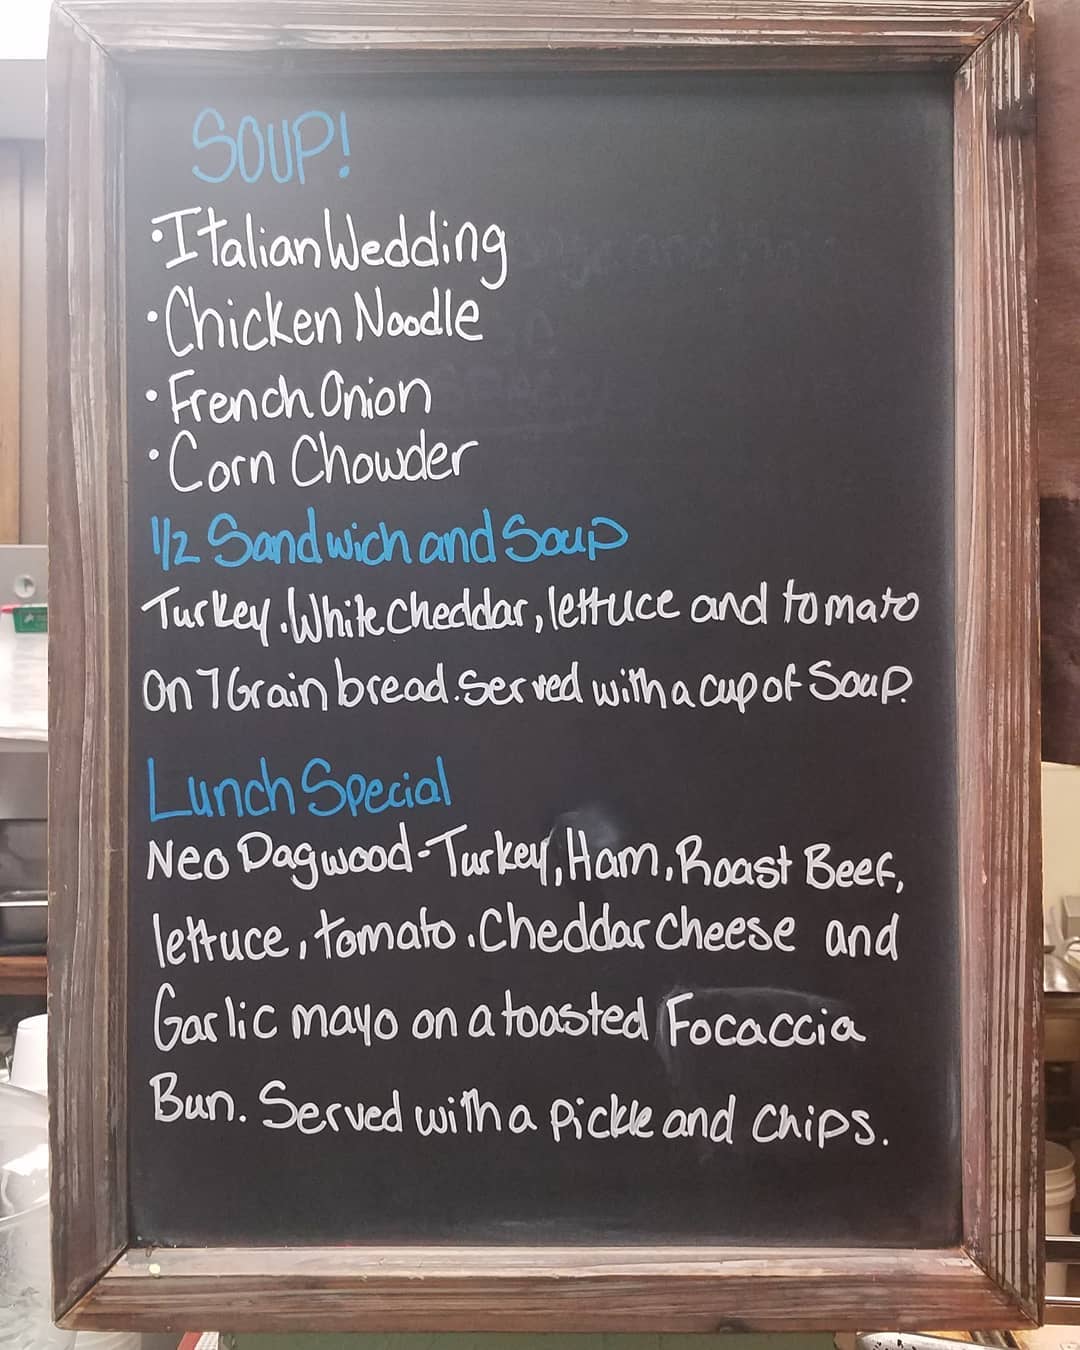 SOUP!
•Italian Wedding
•Chicken Noodle
•French Onion
•Corn Chowder
1/2 Sandwich and Soup
Turkey, White Cheddar, lettuce and tomato
On 7 Grain bread. Served with a cup of Soup.
Lunch Special
Neo Dagwood-Turkey, Ham, Roast Beef,
lettuce, tomato, Cheddar Cheese and
Garlic mayo on a toasted Focaccia
Bun. Served with a Pickle and Chips.